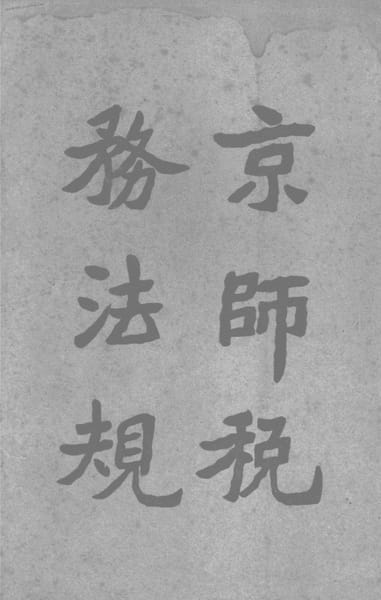 京師稅
務法規